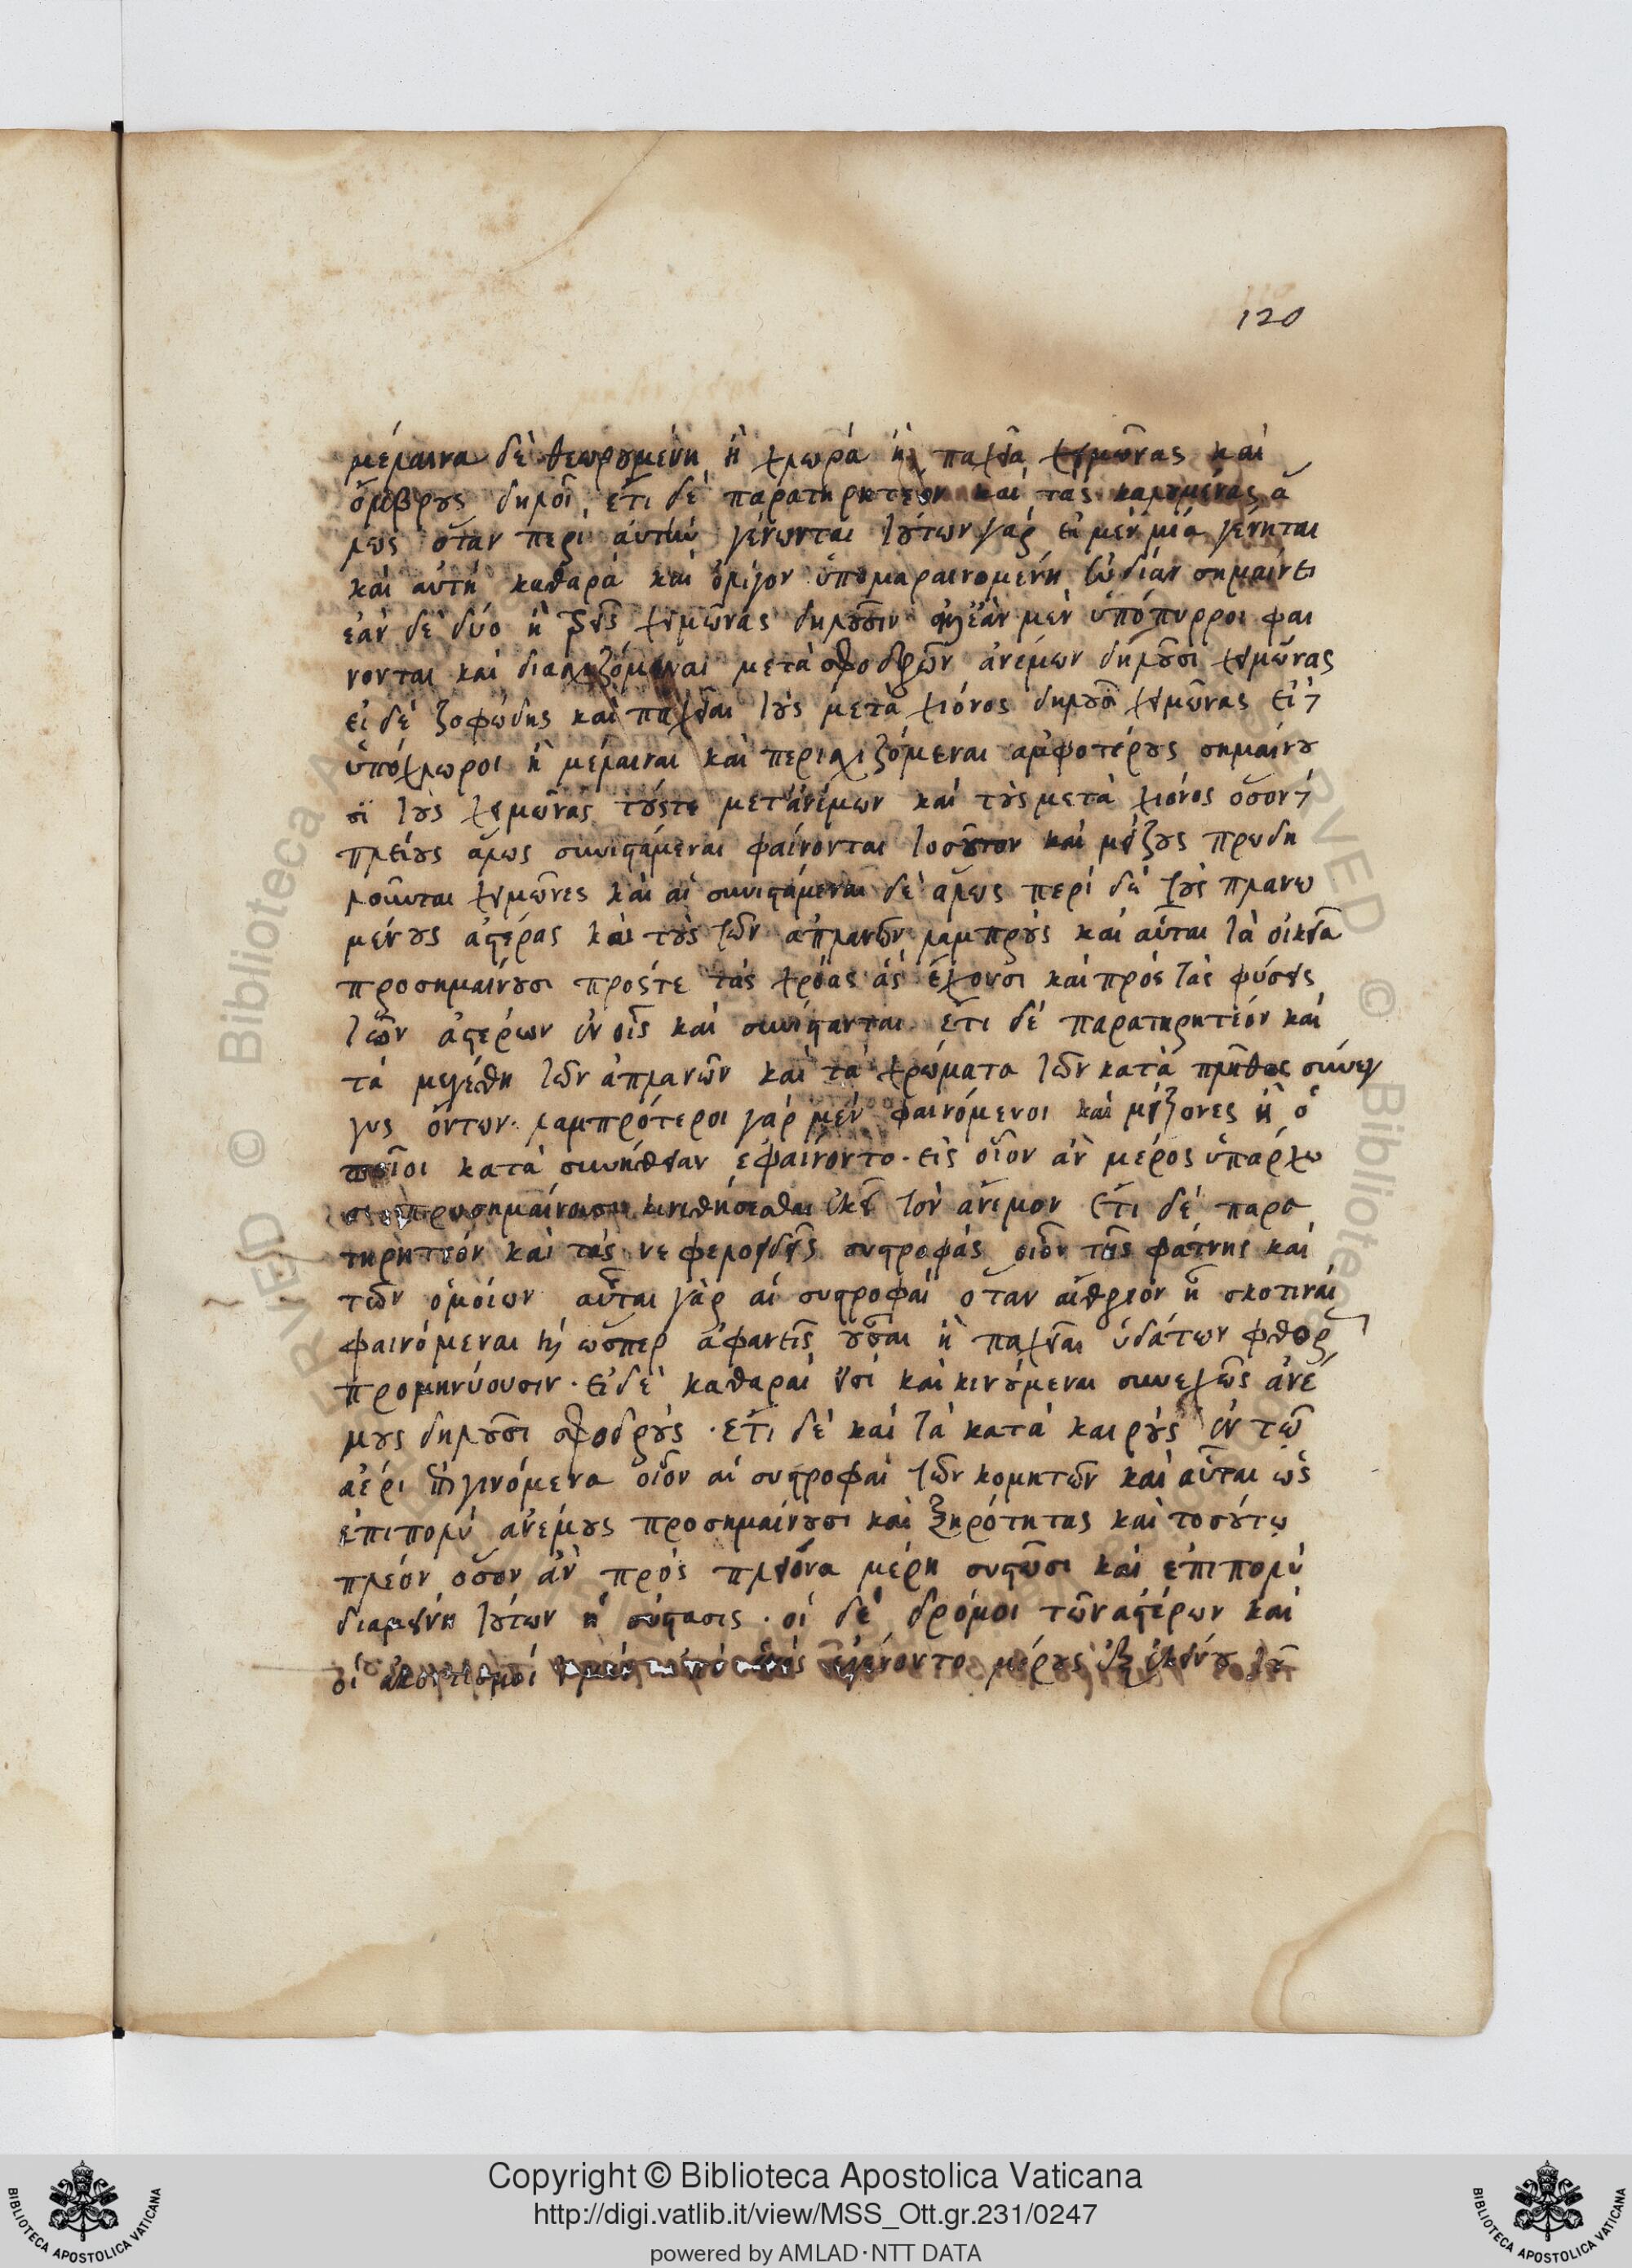 120
μέλαινα δὲ θεωρουμένη ἢ χλωρὰ ἢ παχεῖα χειμῶνας καὶ
ὄμβρους δηλοῖ ἔτι δὲ παρατηρητέον καὶ τὰς καλουμένας ἅ
λως ὅταν περὶ αὐτὴν γένωνται τούτων γὰρ εἰ μὲν μία γένηται
καὶ αὐτὴ καθαρὰ καὶ ὀλίγον ὑπομαραινομένη εὐδίαν σημαίνει
ἐὰν δὲ δύο ἢ τρεῖς χειμῶνας δηλοῦσιν ἐὰν μὲν ὑπόπυρροι φαί
νονται καὶ διαλυζόμεναι μετὰ σφοδρῶν ἀνέμων δηλοῦσι χειμῶνας
εἰ δὲ ζοφώδης καὶ παχεῖαι τοὺς μετὰ χιόνος δηλοῦσι χειμῶνας εἰ δὲ
ὑπόχλωροι ἢ μέλαιναι καὶ περιλιζόμεναι ἀμφοτέρους σημαίνου
σι τοὺς χειμῶνας τούς τε μετ' ἀνέμων καὶ τοὺς μετὰ χιόνος ὅσον δὲ
πλείους ἅλως συνιστάμεναι φαίνονται τοσοῦτον καὶ μείζους προδη
λοῦνται χειμῶνες καὶ αἱ συνιστάμεναι δὲ ἅλως περὶ δὲ τοὺς πλανω
μένους ἀστέρας καὶ τοὺς τῶν ἀπλανῶν λαμπροὺς καὶ αὗται τὰ οἰκεῖα
προσημαίνουσι πρός τε τὰς χρόας ἃς ἔχουσι καὶ πρὸς τὰς φύσεις
τῶν ἀστέρων ἐν οἷς καὶ συνίστανται ἔτι δὲ παρατηρητέον καὶ
τὰ μεγέθη τῶν ἀπλανῶν καὶ τὰ χρώματα τῶν κατὰ πλῆθος σύνεγ
γυς ὄντων· λαμπρότεροι γὰρ μὲν φαινόμενοι καὶ μείζονες ἢ ὁ
ποῖοι κατὰ συνήθειαν ἐφαίνοντο· εἰς οἷον ἂν μέρος ὑπάρχω
σι προσημαίνουσι κινηθήσεσθαι ἐκεῖ τὸν ἄνεμον ἔτι δὲ παρα
τηρητέον καὶ τὰς νεφελοειδεῖς συστροφάς οἷον τῆς φάτνης καὶ
τῶν ὁμοίων αὗται γὰρ αἱ συστροφαὶ ὅταν αἴθριον ᾖ σκοτειναὶ
φαινόμεναι καὶ ὥσπερ ἀφανεῖς οὖσαι ἢ παχεῖαι ὑδάτων φθορὰν
προμηνύουσιν· εἰ δὲ καθαραὶ εἰσὶ καὶ κινούμεναι συνεχῶς ἀνέ
μους δηλοῦσι σφοδρούς· ἔτι δὲ καὶ τὰ κατὰ καιροὺς ἐν τῷ
ἀέρι ἐπιγινόμενα οἷον αἱ συστροφαὶ τῶν κομητῶν καὶ αὗται ὡς
ἐπιπολὺ ἀνέμους προσημαίνουσι καὶ ξηρότητας καὶ τοσούτῳ
πλέον ὅσον ἂν πρὸς πλείονα μέρη συστῶσι καὶ ἐπιπολὺ
διαμείνῃ τούτων ἡ σύστασις· οἱ δὲ δρόμοι τῶν ἀστέρων καὶ
οἱ ἀκοντισμοὶ ἀπὸ ἑνὸς ἐγένοντο μέρους ἐξ ἐκείνου
© Biblioteca Apostolica Vaticana
Copyright © Biblioteca Apostolica Vaticana
http://digi.vatlib.it/view/MSS_Ott.gr.231/0247
powered by AMLAD·NTT DATA
BIBLIOTECA APOSTOLICA VATICANA
BIBLIOTECA APOSTOLICA VATICANA